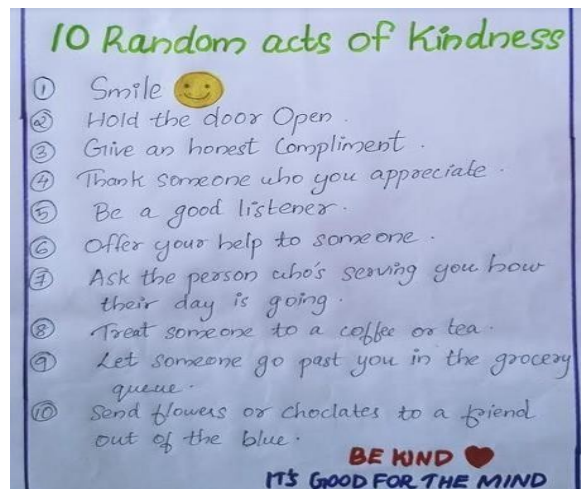 10 Random acts of Kindness
① Smile
② Hold the door Open.
③ Give an honest Compliment.
④ Thank someone who you appreciate.
⑤ Be a good listener.
⑥ Offer your help to someone.
⑦ Ask the person who's serving you how
their day is going.
⑧ Treat someone to a coffee or tea.
⑨ Let someone go past you in the grocery
queue.
⑩ Send flowers or choclates to a friend
out of the blue.
BE KIND ❤
IT'S GOOD FOR THE MIND